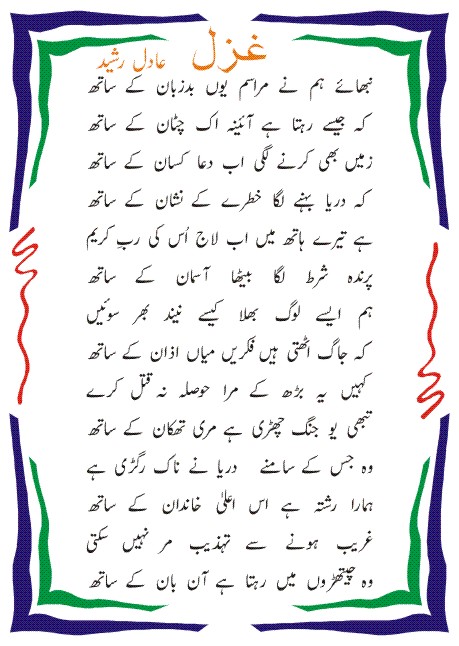 غزل
عادل رشید
نبھائے ہم نے مراسم یوں بدزبان کے ساتھ
کہ جیسے رہتا ہے آئینہ اک چٹان کے ساتھ
زمیں بھی کرنے لگی اب دعا کسان کے ساتھ
کہ دریا بہنے لگا خطرے کے نشان کے ساتھ
ہے تیرے ہاتھ میں اب لاج اُس کی ربِ کریم
پرندہ شرط لگا بیٹھا آسمان کے ساتھ
ہم ایسے لوگ بھلا کیسے نیند بھر سوئیں
کہ جاگ اٹھتی ہیں فکریں میاں اذان کے ساتھ
کہیں یہ بڑھ کے مرا حوصلہ نہ قتل کرے
تبھی یو جنگ چھڑی ہے مری تھکان کے ساتھ
وہ جس کے سامنے دریا نے ناک رگڑی ہے
ہمارا رشتہ ہے اس اعلیٰ خاندان کے ساتھ
غریب ہونے سے تہذیب مر نہیں سکتی
وہ چیتھڑوں میں رہتا ہے آن بان کے ساتھ